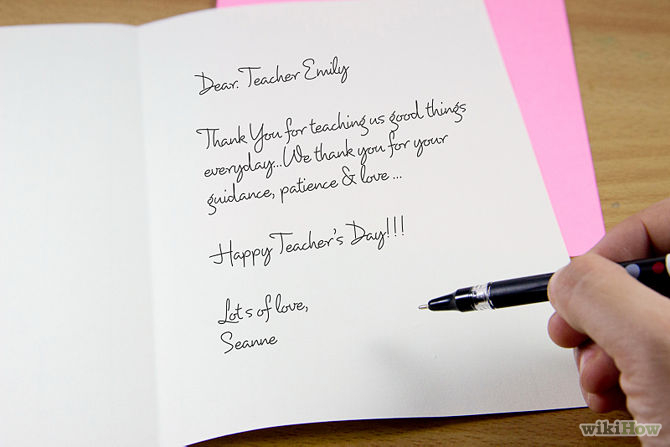 Dear. Teacher Emily
Thank You for teaching us good things
everyday...We thank you for your
guidance, patience & love ...
Happy Teacher's Day!!!
Lots of love,
Seanne
wikiHow